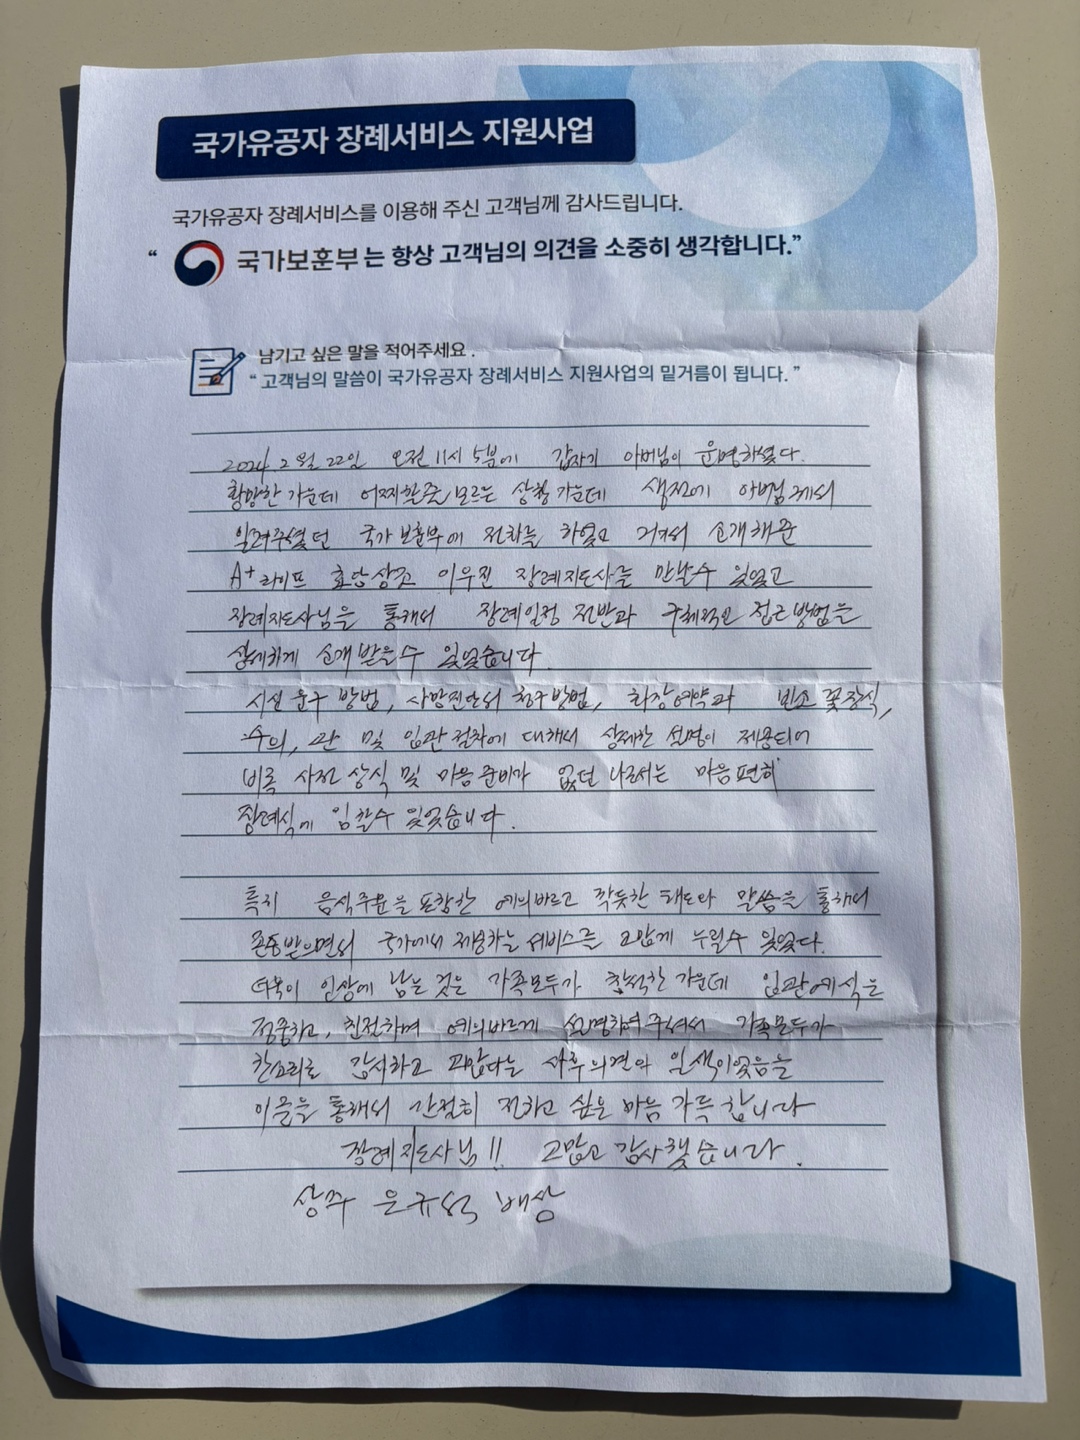 국가유공자 장례서비스 지원사업
국가유공자 장례서비스를 이용해 주신 고객님께 감사드립니다.
“ 국가보훈부는 항상 고객님의 의견을 소중히 생각합니다.”
남기고 싶은 말을 적어주세요.
“ 고객님의 말씀이 국가유공자 장례서비스 지원사업의 밑거름이 됩니다. ”
2024 2월 22일 오전 11시 5분에 갑자기 아버님이 운명하셨다.
황망한 가운데 어찌할줄 모르는 상황 가운데 생전에 아버님께서
알려주셨던 국가보훈부에 전화를 하였고 거기서 소개해준
A+라이프 효담상조 이우진 장례지도사를 만날수 있었고
장례지도사님을 통해서 장례일정 전반과 구체적인 접근방법을
상세하게 소개받을수 있었습니다.
시신 운구 방법, 사망진단서 청구방법, 화장예약과 빈소 꽃장식,
수의, 관 및 입관절차에 대해서 상세한 설명이 제공되어
비록 사전 상식 및 마음준비가 없던 나로서는 마음편히
장례식에 임할수 있었습니다.
특히 음식주문을 포함한 예의바르고 깍듯한 태도와 말씀을 통해서
존중받으면서 국가에서 제공하는 서비스를 고맙게 누릴수 있었다.
더욱이 인상에 남는 것은 가족모두가 참석한 가운데 입관예식을
정중하고, 친절하며 예의바르게 설명하여주셔서 가족모두가
한소리로 감사하고 고맙다는 사후의견이 일색이었음을
이글을 통해서 간절히 전하고 싶은 마음 가득 합니다
장례지도사님!! 고맙고 감사했습니다.
상주 은규석 배상